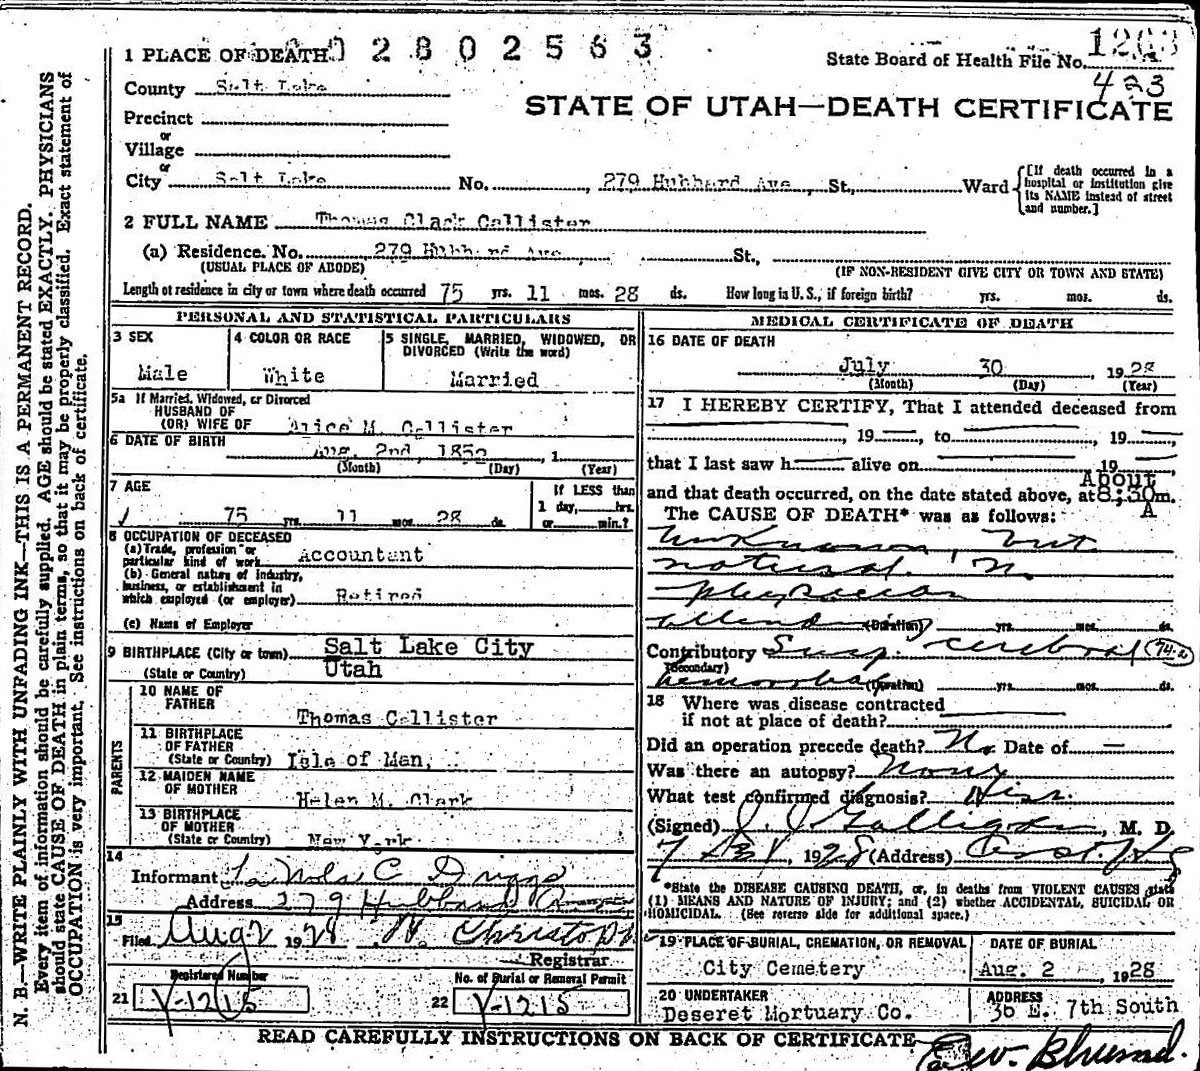 1 PLACE OF DEATH 02802563
State Board of Health File No. 1263
423
County Salt Lake
STATE OF UTAH—DEATH CERTIFICATE
Precinct
or
Village
or
City Salt Lake No. , 279 Hubbard Ave , St., Ward
[If death occurred in a hospital or institution give its NAME instead of street and number.]
2 FULL NAME Thomas Clark Callister
(a) Residence. No. 279 Hubbard Ave St.,
(USUAL PLACE OF ABODE) (IF NON-RESIDENT GIVE CITY OR TOWN AND STATE)
Length of residence in city or town where death occurred 75 yrs. 11 mos. 28 ds. How long in U. S., if foreign birth? yrs. mos. ds.
PERSONAL AND STATISTICAL PARTICULARS
3 SEX
Male
4 COLOR OR RACE
White
5 SINGLE, MARRIED, WIDOWED, OR
DIVORCED (Write the word)
Married
5a If Married, Widowed, or Divorced
HUSBAND OF
(OR) WIFE OF Alice M. Callister
6 DATE OF BIRTH Aug. 2nd, 1852, 1
(Month) (Day) (Year)
7 AGE
75 yrs. 11 mos. 28 ds.
If LESS than
1 day, hrs.
or min.?
8 OCCUPATION OF DECEASED
(a) Trade, profession or
particular kind of work Accountant
(b) General nature of industry,
business, or establishment in
which employed (or employer) Retired
(c) Name of Employer
9 BIRTHPLACE (City or town) Salt Lake City
(State or Country) Utah
PARENTS
10 NAME OF
FATHER Thomas Callister
11 BIRTHPLACE
OF FATHER
(State or Country) Isle of Man,
12 MAIDEN NAME
OF MOTHER Helen M. Clark
13 BIRTHPLACE
OF MOTHER
(State or Country) New York
14
Informant C Driggs
Address 279 Hubbard
15
Filed Aug 2 1928
Registrar
Registered Number
21 Y-1215
No. of Burial or Removal Permit
22 Y-1215
MEDICAL CERTIFICATE OF DEATH
16 DATE OF DEATH
July 30 1928
(Month) (Day) (Year)
17 I HEREBY CERTIFY, That I attended deceased from
, 19 , to , 19 ,
that I last saw h alive on 19
About
and that death occurred, on the date stated above, at 8:30 m.
A
The CAUSE OF DEATH* was as follows:
Unknown, but
natural No
physician
attending (Duration) yrs. mos. ds.
Contributory Susp. cerebral 74-a
(Secondary)
hemorrhage (Duration) yrs. mos. ds.
18 Where was disease contracted
if not at place of death?
Did an operation precede death? No Date of —
Was there an autopsy? None
What test confirmed diagnosis? Hist.
(Signed) J. J. Galligan, M. D.
7/31, 1928 (Address)
*State the DISEASE CAUSING DEATH, or, in deaths from VIOLENT CAUSES state
(1) MEANS AND NATURE OF INJURY; and (2) whether ACCIDENTAL, SUICIDAL OR
HOMICIDAL. (See reverse side for additional space.)
19 PLACE OF BURIAL, CREMATION, OR REMOVAL
City Cemetery
DATE OF BURIAL
Aug. 2 , 1928
20 UNDERTAKER
Deseret Mortuary Co.
ADDRESS
36 E. 7th South
READ CAREFULLY INSTRUCTIONS ON BACK OF CERTIFICATE
N. B.—WRITE PLAINLY WITH UNFADING INK—THIS IS A PERMANENT RECORD.
Every item of information should be carefully supplied. AGE should be stated EXACTLY. PHYSICIANS
should state CAUSE OF DEATH in plain terms, so that it may be properly classified. Exact statement of
OCCUPATION is very important. See instructions on back of certificate.